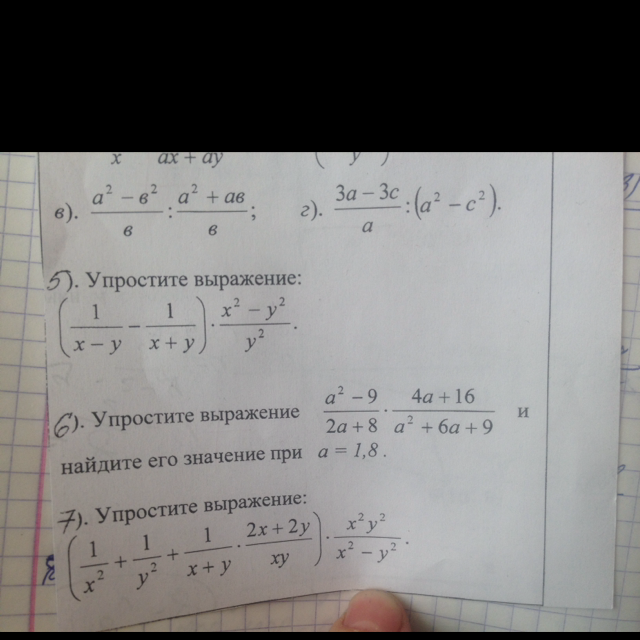 x ax + ay ( y )
в). (а² − в²)/в : (а² + ав)/в ; г). (3a − 3c)/a : (a² − c²).
5). Упростите выражение:
(1/(x − y) − 1/(x + y)) · (x² − y²)/y².
6). Упростите выражение (a² − 9)/(2a + 8) · (4a + 16)/(a² + 6a + 9) и
найдите его значение при a = 1,8.
7). Упростите выражение:
(1/x² + 1/y² + 1/(x + y) · (2x + 2y)/(xy)) · x²y²/(x² − y²).